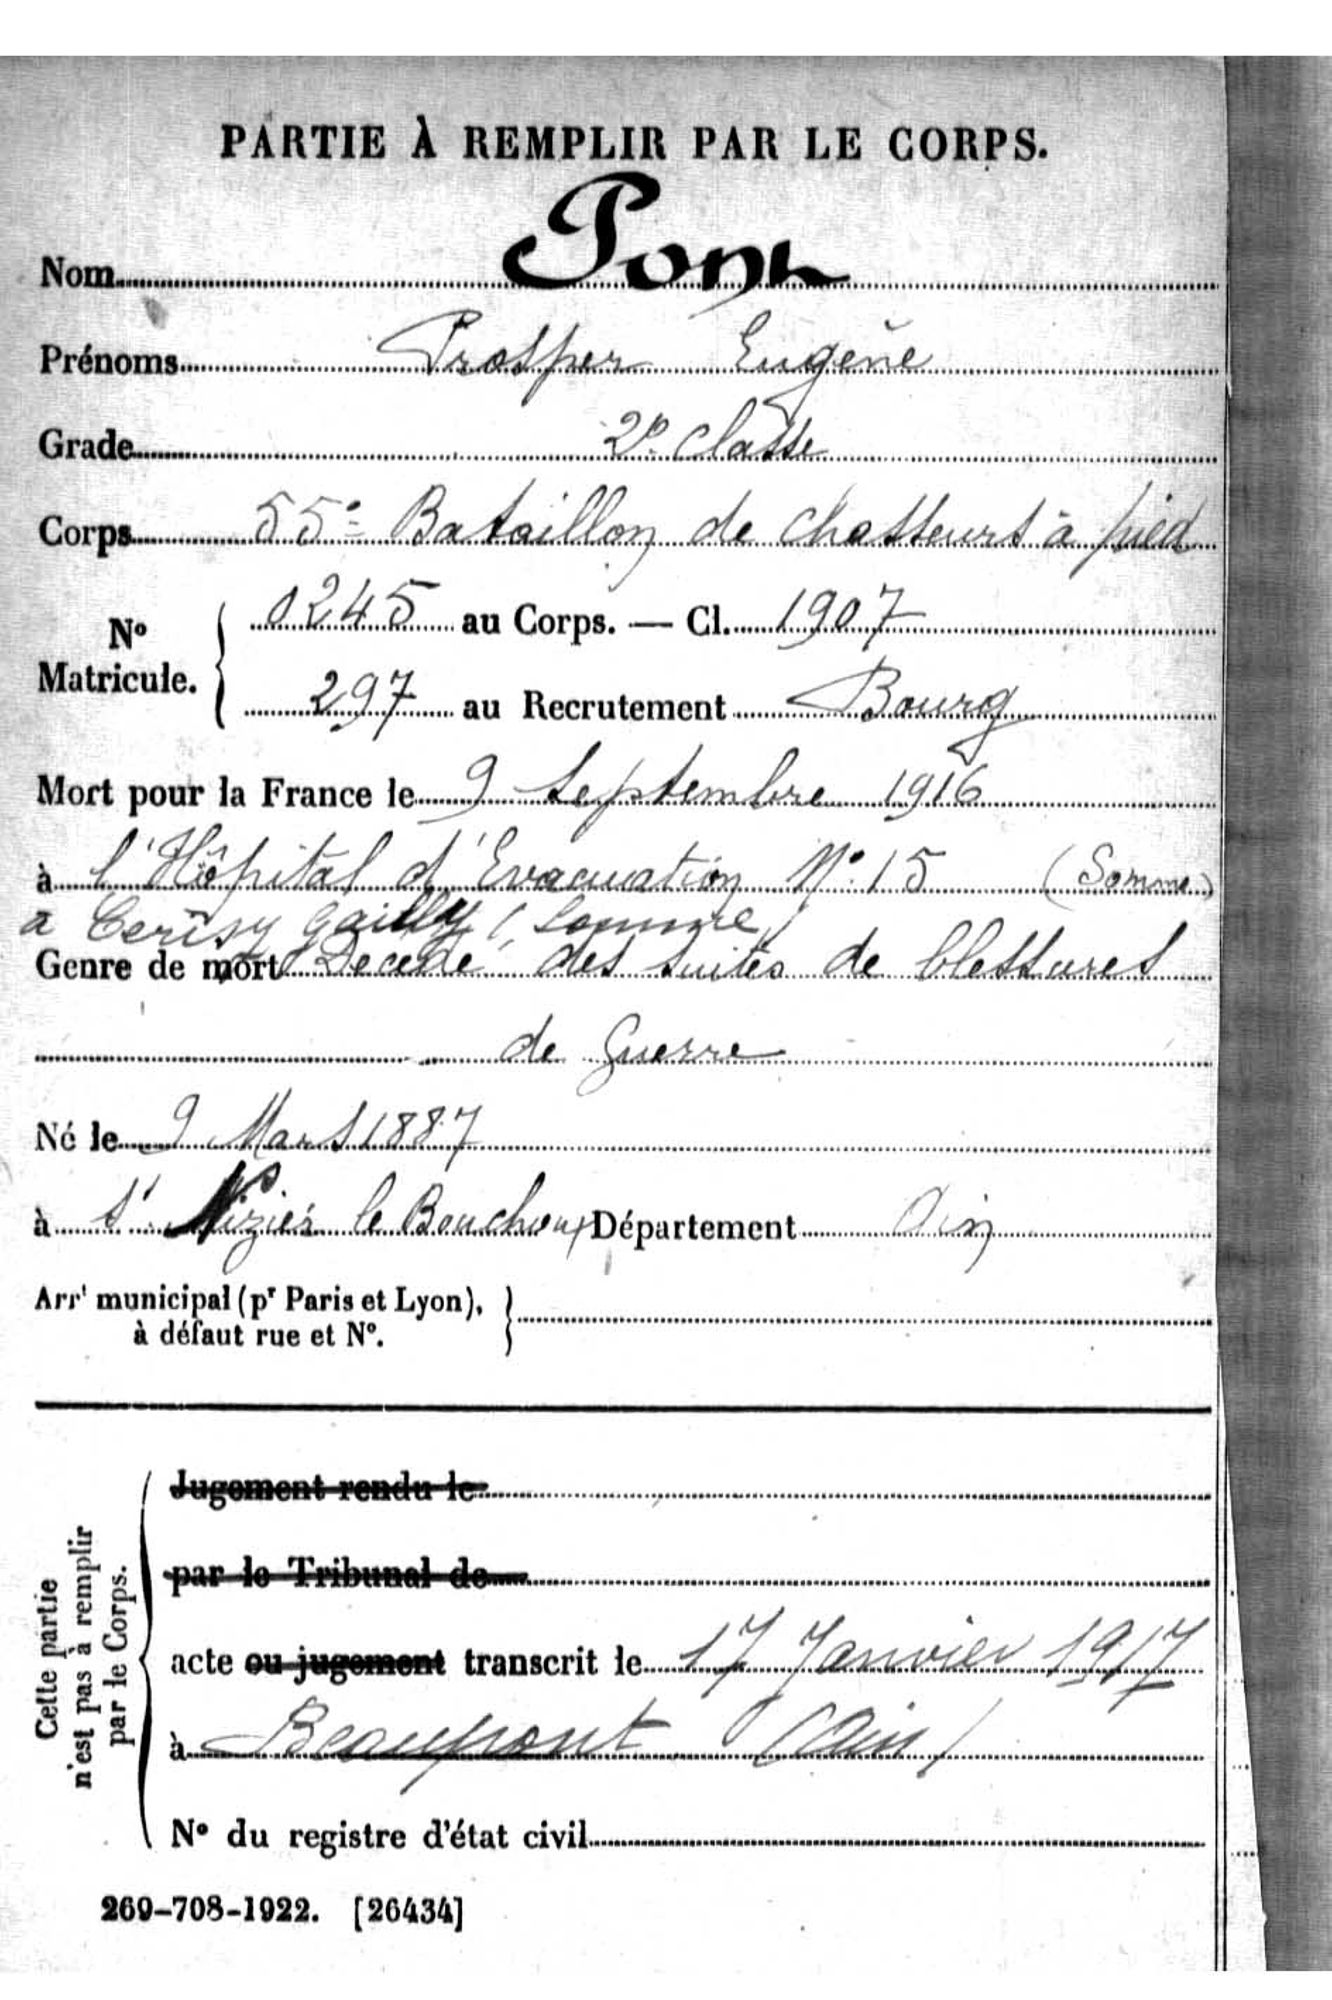 PARTIE À REMPLIR PAR LE CORPS.
Nom Pont
Prénoms Prosper Eugène
Grade 2e classe
Corps 55e Bataillon de chasseurs à pied
No Matricule. 0245 au Corps. — Cl. 1907
297 au Recrutement Bourg
Mort pour la France le 9 septembre 1916
à l'Hôpital d'Evacuation No 15 (Somme)
à Cerisy Gailly (Somme)
Genre de mort Décédé des suites de blessures
de Guerre
Né le 9 Mars 1887
à St Nizier le Bouchoux Département Ain
Arrt municipal (pr Paris et Lyon),
à défaut rue et No.
Cette partie
n'est pas à remplir
par le Corps.
Jugement rendu le
par le Tribunal de
acte ou jugement transcrit le 17 Janvier 1917
à Beaupont (Ain)
No du registre d'état civil
269-708-1922. [26434]